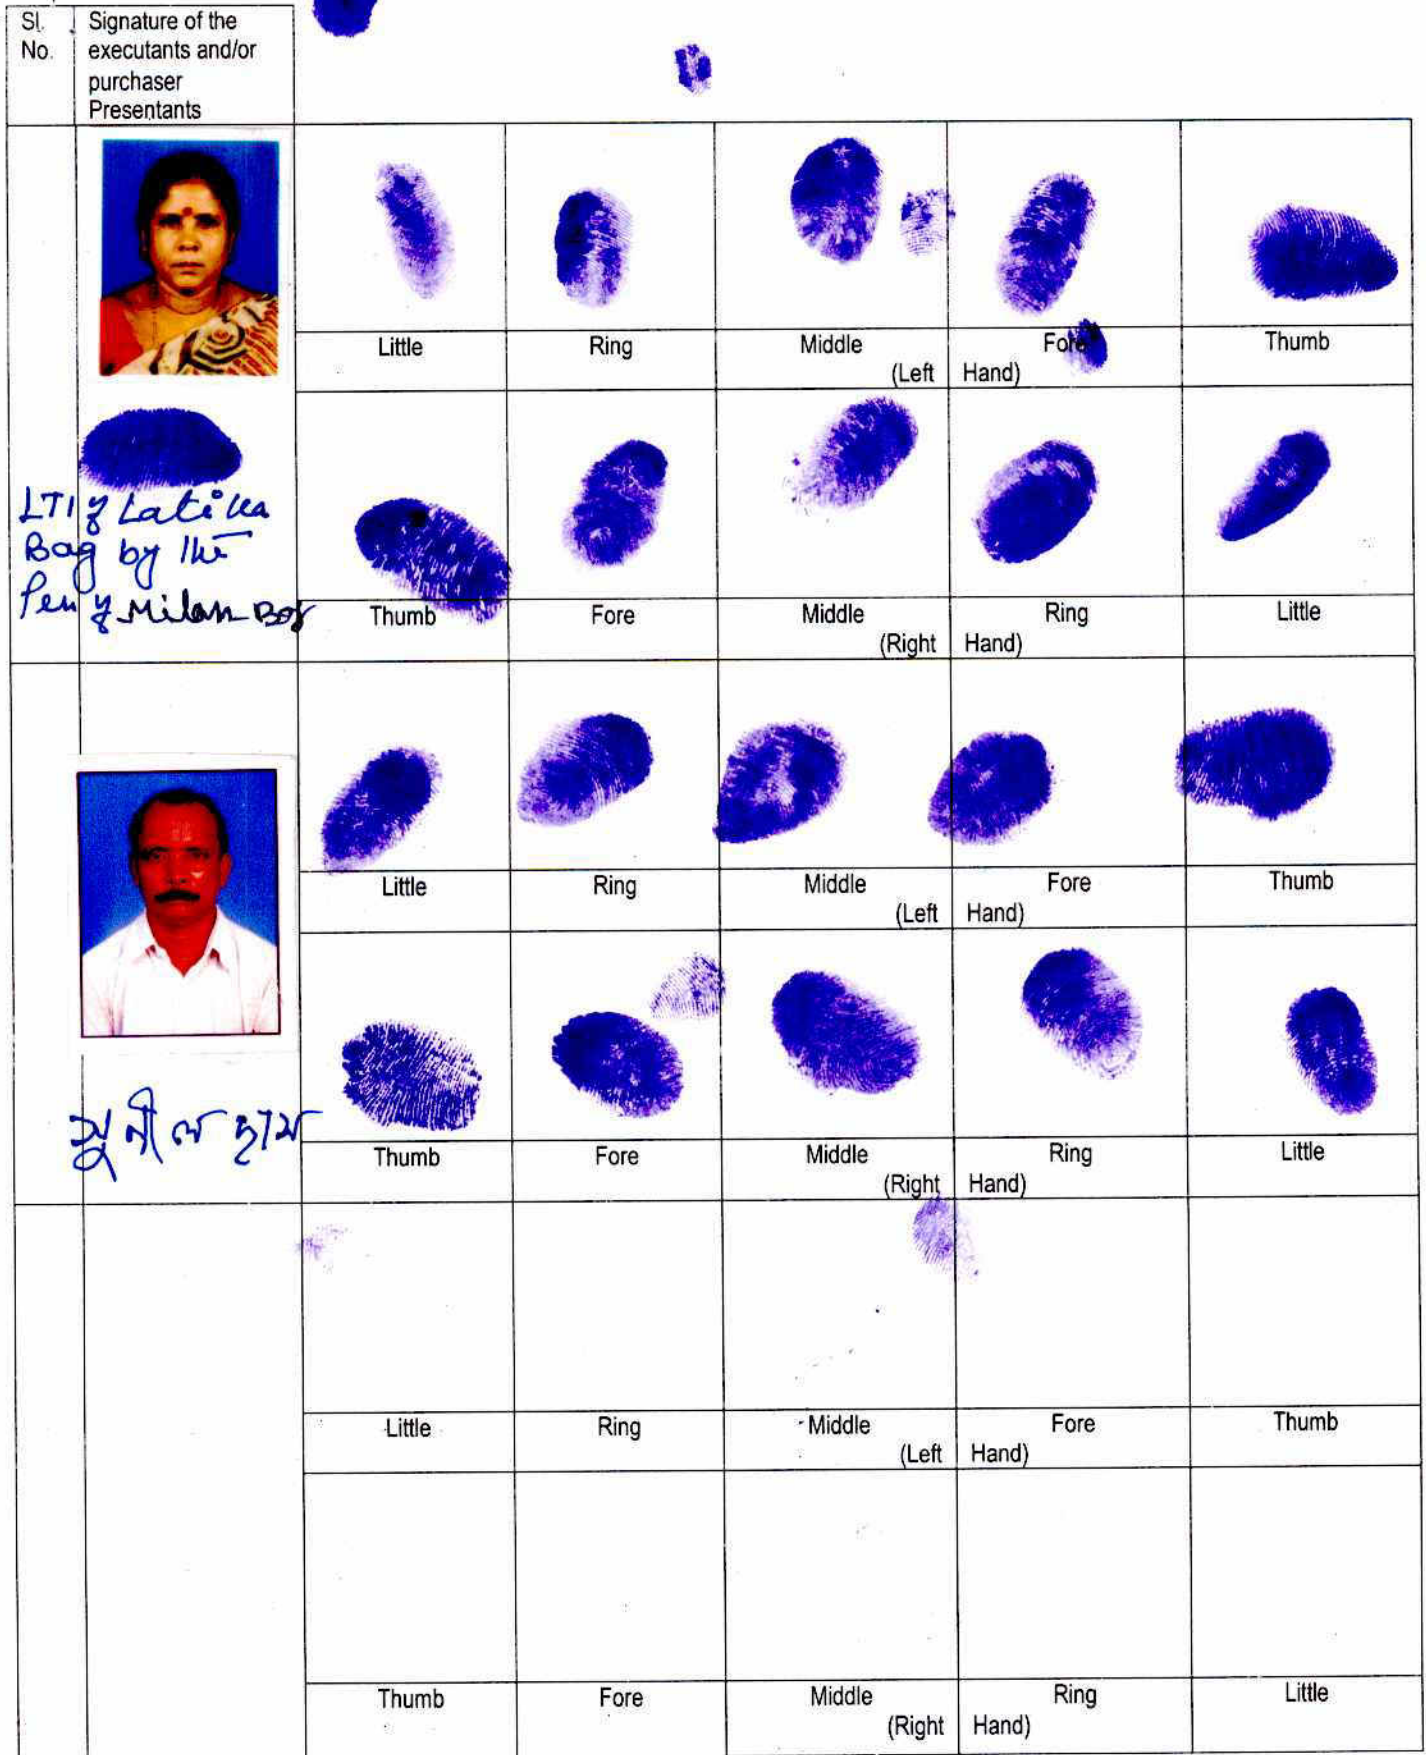 Sl. Signature of the
No. executants and/or
purchaser
Presentants
Little Ring Middle Fore Thumb
(Left Hand)
LTI of Latika
Bag by the
Pen of Milan Bag
Thumb Fore Middle Ring Little
(Right Hand)
Little Ring Middle Fore Thumb
(Left Hand)
সুনীল দাস
Thumb Fore Middle Ring Little
(Right Hand)
Little Ring Middle Fore Thumb
(Left Hand)
Thumb Fore Middle Ring Little
(Right Hand)